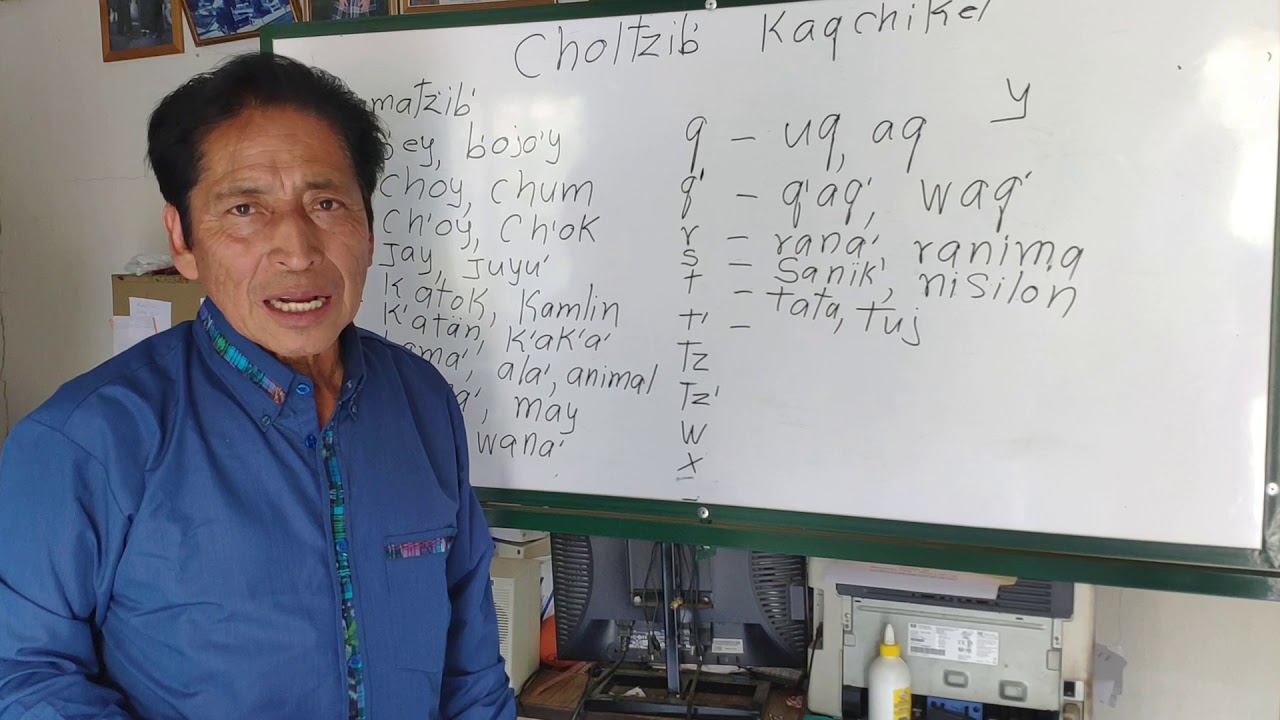 Choltzib' Kaqchikel
matzib'
ey, b'ojo'y
choy, chum
ch'oy, ch'ok
Jay, Juyu'
katok, kamlin
k'atän, k'ak'a'
ama', ala', animal
a', may
wana'
y
q - uq, aq
q' - q'aq', waq'
r - rana', ranima
s - sanik', nisilon
t - tata, tuj
t' -
Tz
Tz'
w
x